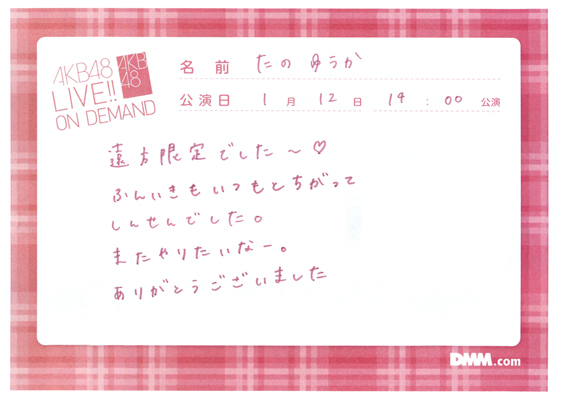 AKB48
LIVE!!
ON DEMAND
AKB
48
名前 たの ゆうか
公演日 1月12日 14:00 公演
遠方限定でした〜♡
ふんいきもいつもとちがって
しんせんでした。
またやりたいなー。
ありがとうございました
DMM.com